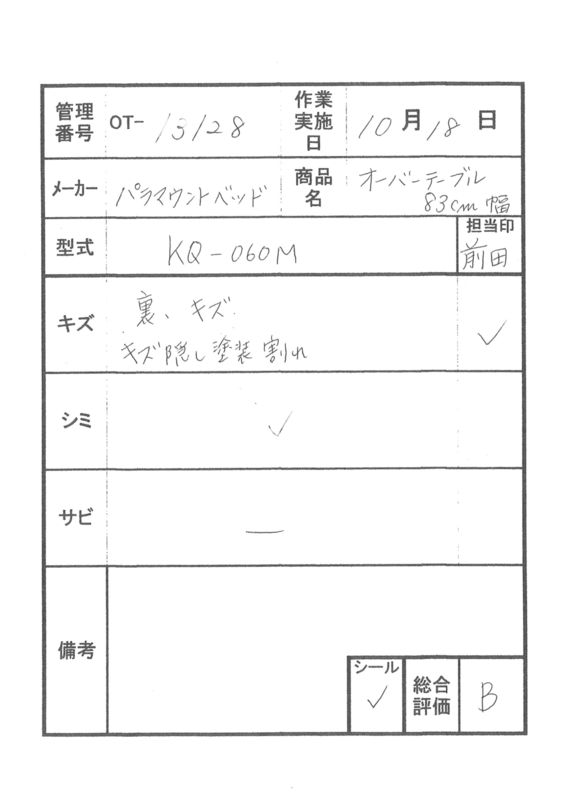 管理番号 OT- 13128 作業実施日 10月18日
メーカー パラマウントベッド 商品名 オーバーテーブル 83cm幅
型式 KQ-060M 担当印 前田
キズ 裏、キズ ✓
キズ隠し塗装割れ
シミ ✓
サビ —
備考
シール ✓ 総合評価 B